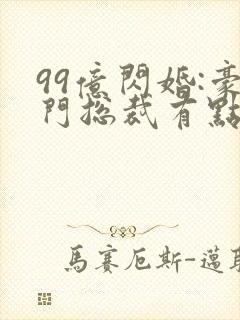 99億閃婚:豪
門總裁有點
馬賽厄斯-邁耶